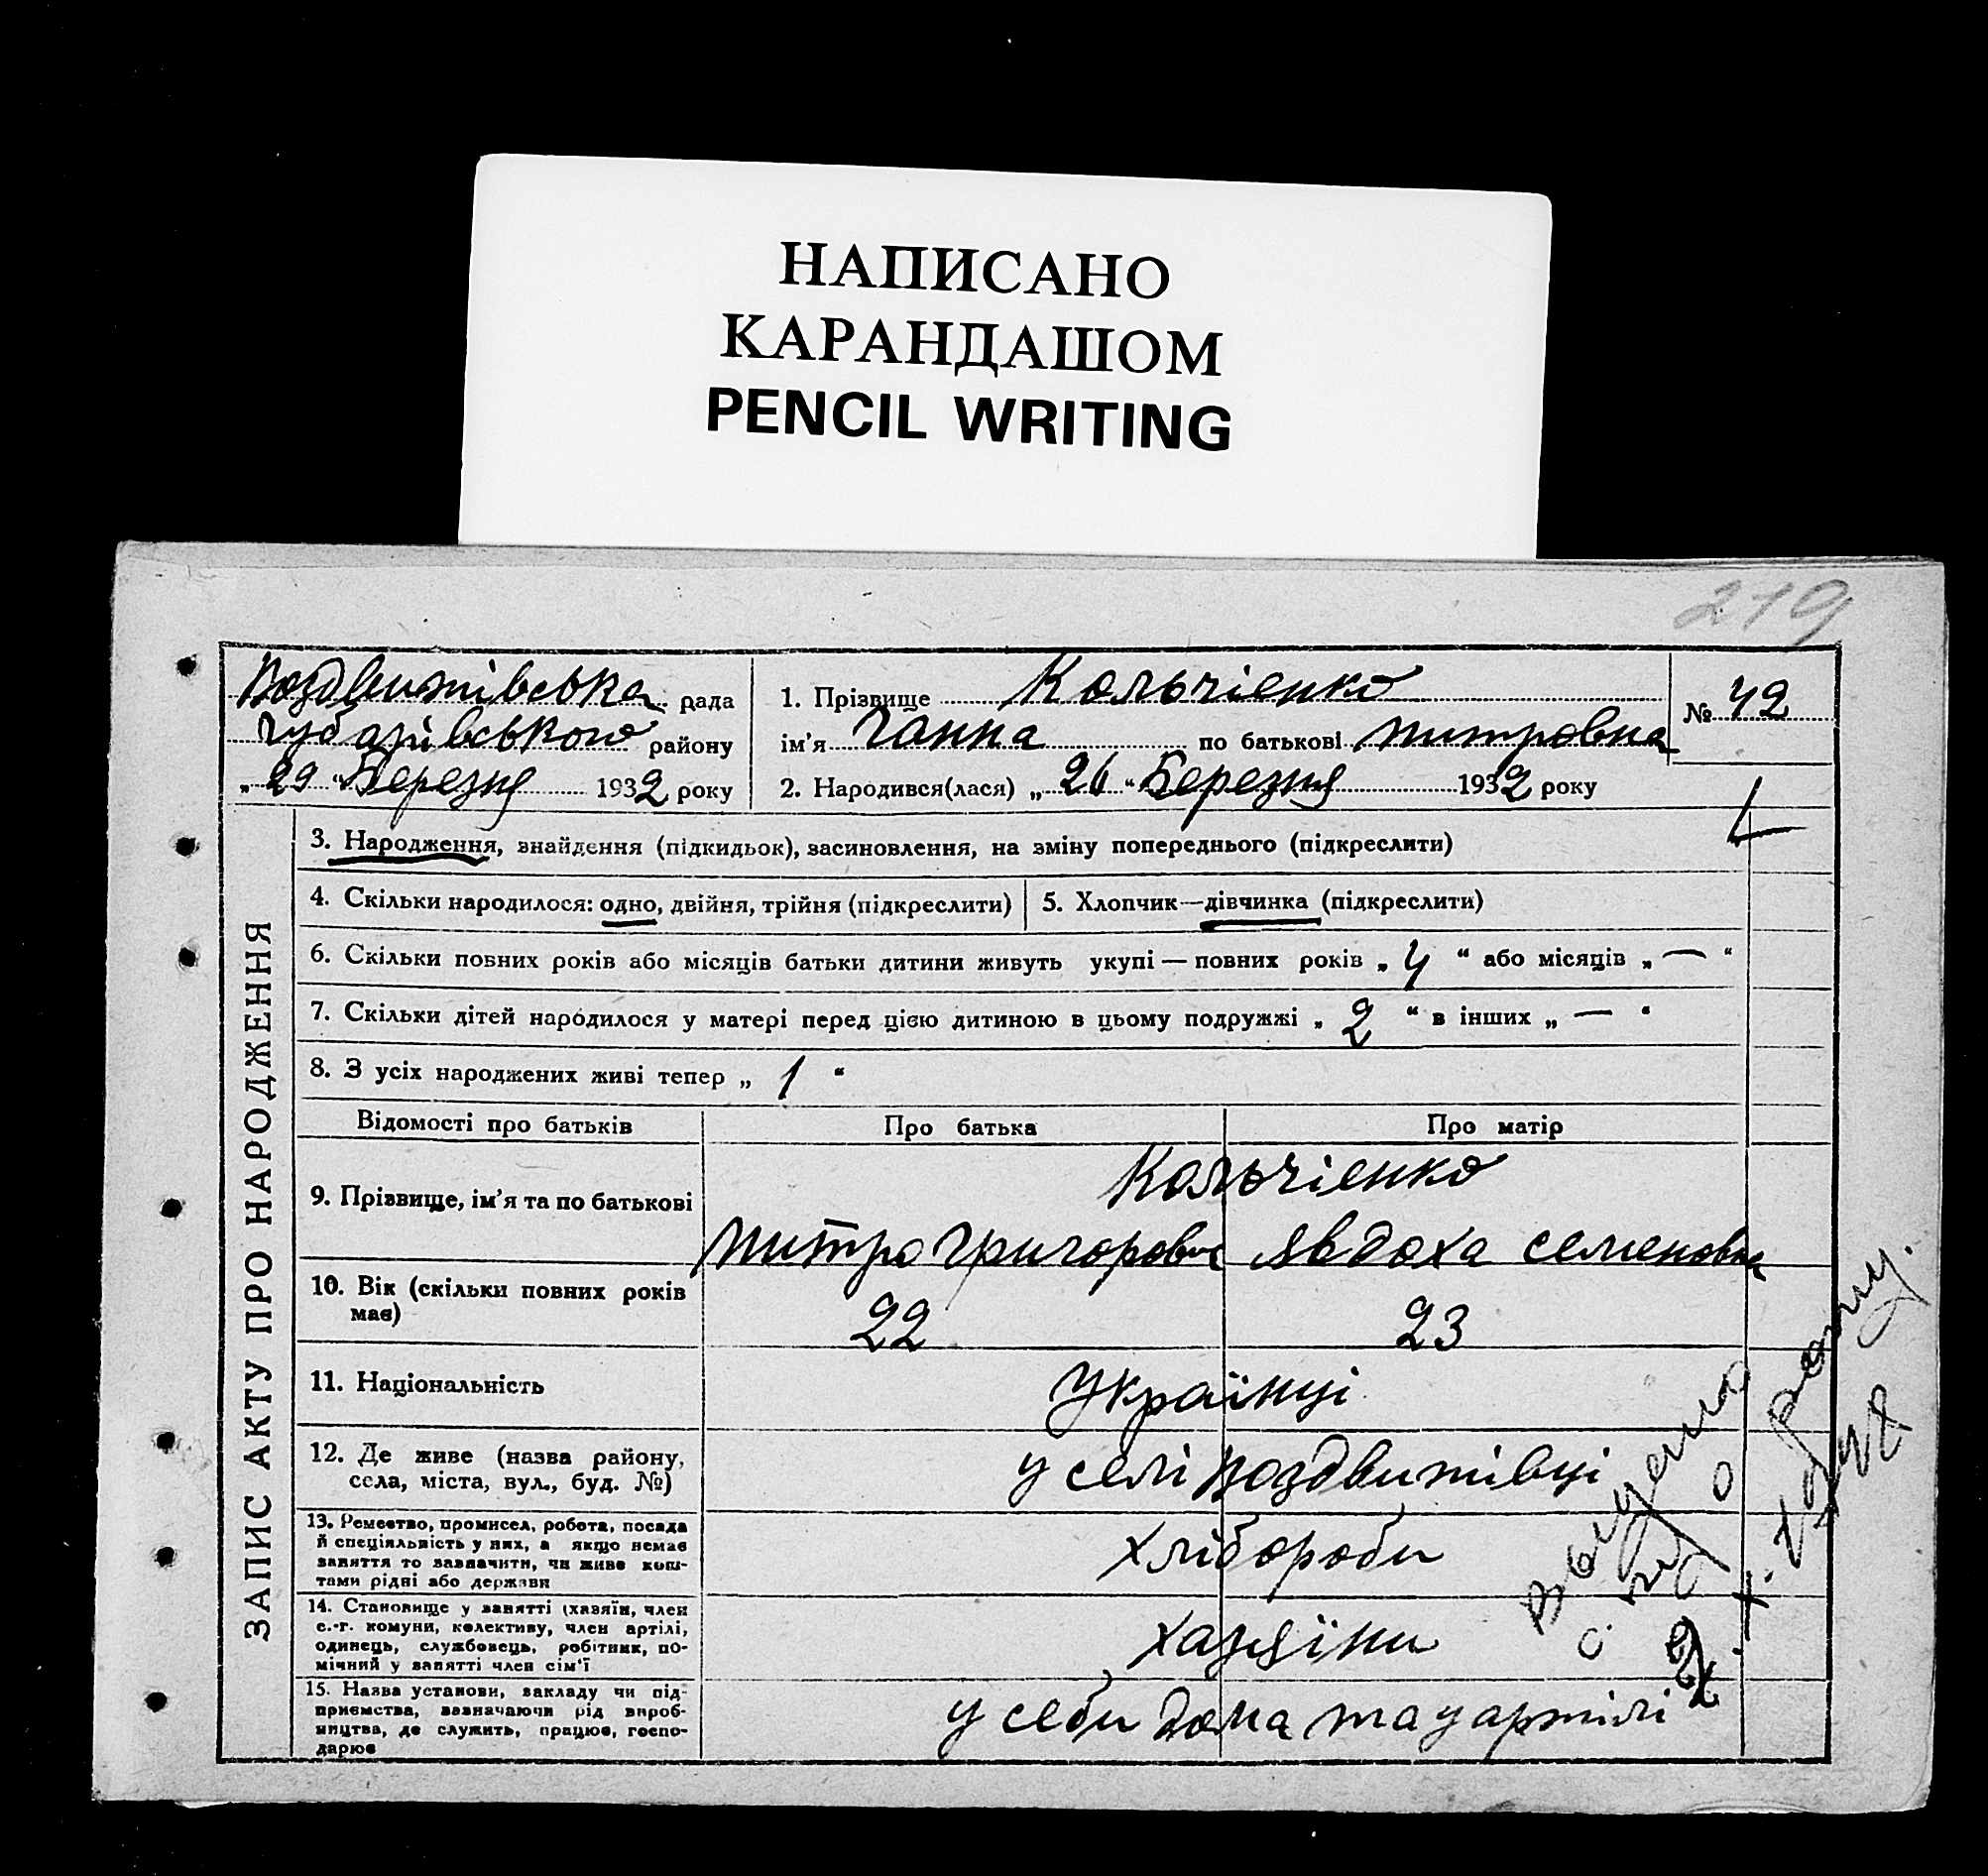 НАПИСАНО
КАРАНДАШОМ
PENCIL WRITING
219
Воздвижівська рада
Губарівського району
„29“ Березня 1932 року
1. Прізвище Кольчіенко
ім'я Ганна по батькові Митровна
№ 42
2. Народився(лася) „26“ Березня 1932 року
ЗАПИС АКТУ ПРО НАРОДЖЕННЯ
3. Народження, знайдення (підкидьок), засиновлення, на зміну попереднього (підкреслити)
4. Скільки народилося: одно, двійня, трійня (підкреслити)
5. Хлопчик—дівчинка (підкреслити)
6. Скільки повних років або місяців батьки дитини живуть укупі — повних років „4“ або місяців „—“
7. Скільки дітей народилося у матері перед цією дитиною в цьому подружжі „2“ в інших „—“
8. З усіх народжених живі тепер „1“
Відомості про батьків Про батька Про матір
9. Прізвище, ім'я та по батькові
Кольчіенко
Митро Григорович Явдоха Семеновна
10. Вік (скільки повних років
має)
22 23
11. Національність
Українці
12. Де живе (назва району,
села, міста, вул., буд. №)
у селі Воздвижівці
13. Ремество, промисел, робота, посада
й спеціяльність у них, а якщо немає
заняття то зазначити, чи живе кош-
тами рідні або держави
хлібороби
14. Становище у занятті (хазяїн, член
с.-г. комуни, колективу, член артілі,
одинець, службовець, робітник, по-
мічний у занятті член сім'ї
хазяїни
15. Назва установи, закладу чи під-
приємства, зазначаючи рід вироб-
ництва, де служить, працює, госпо-
дарює
у себи дома та у артілі